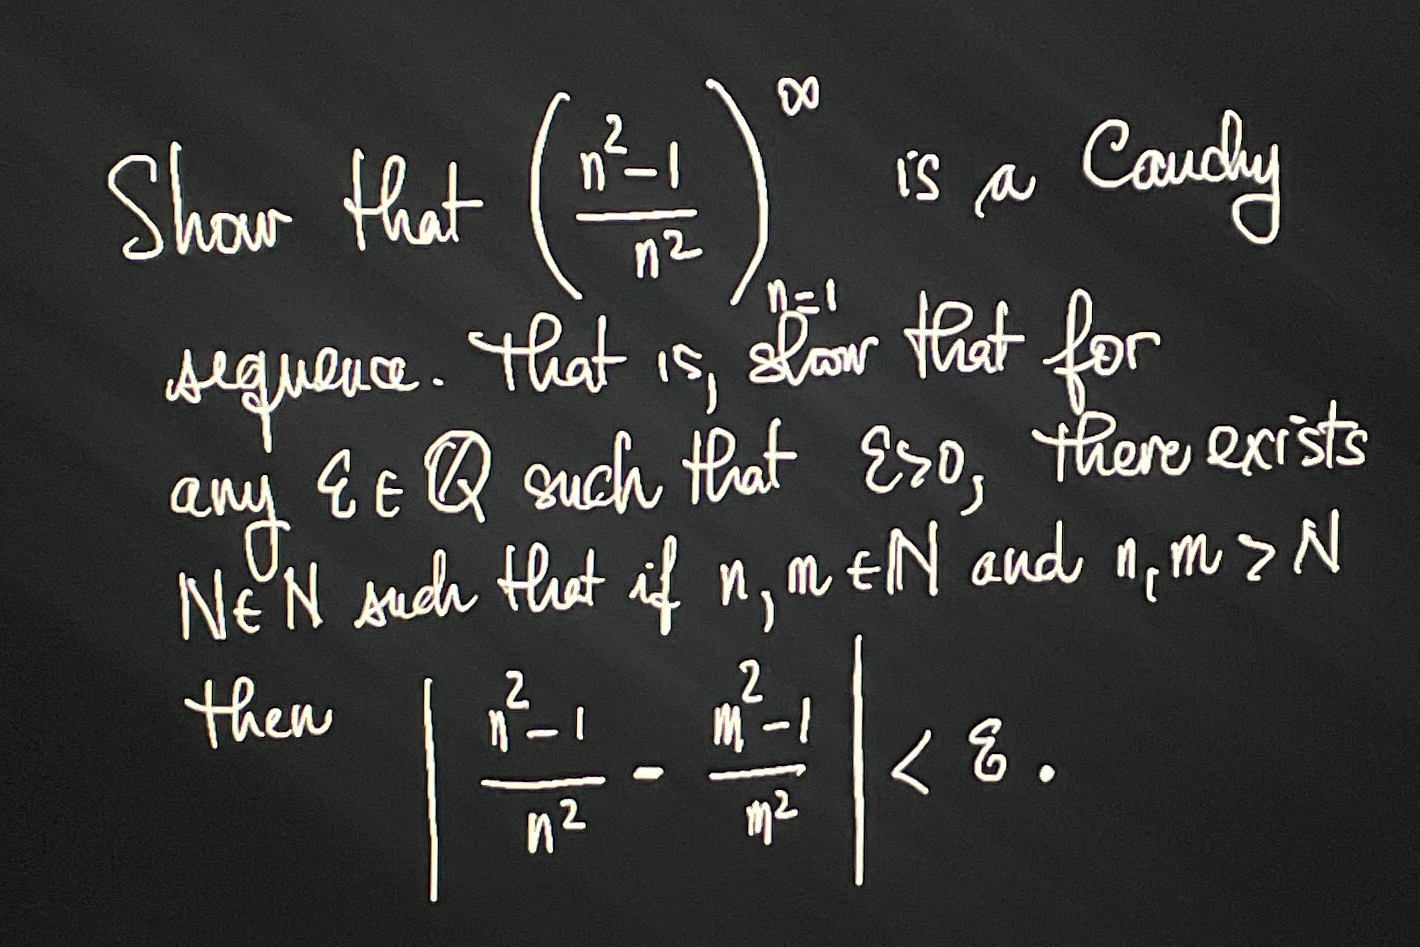 Show that ( (n²-1)/n² )_{n=1}^∞ is a Cauchy
sequence. That is, show that for
any ε ∈ ℚ such that ε>0, there exists
N∈ℕ such that if n, m ∈ ℕ and n, m > N
then | (n²-1)/n² - (m²-1)/m² | < ε.